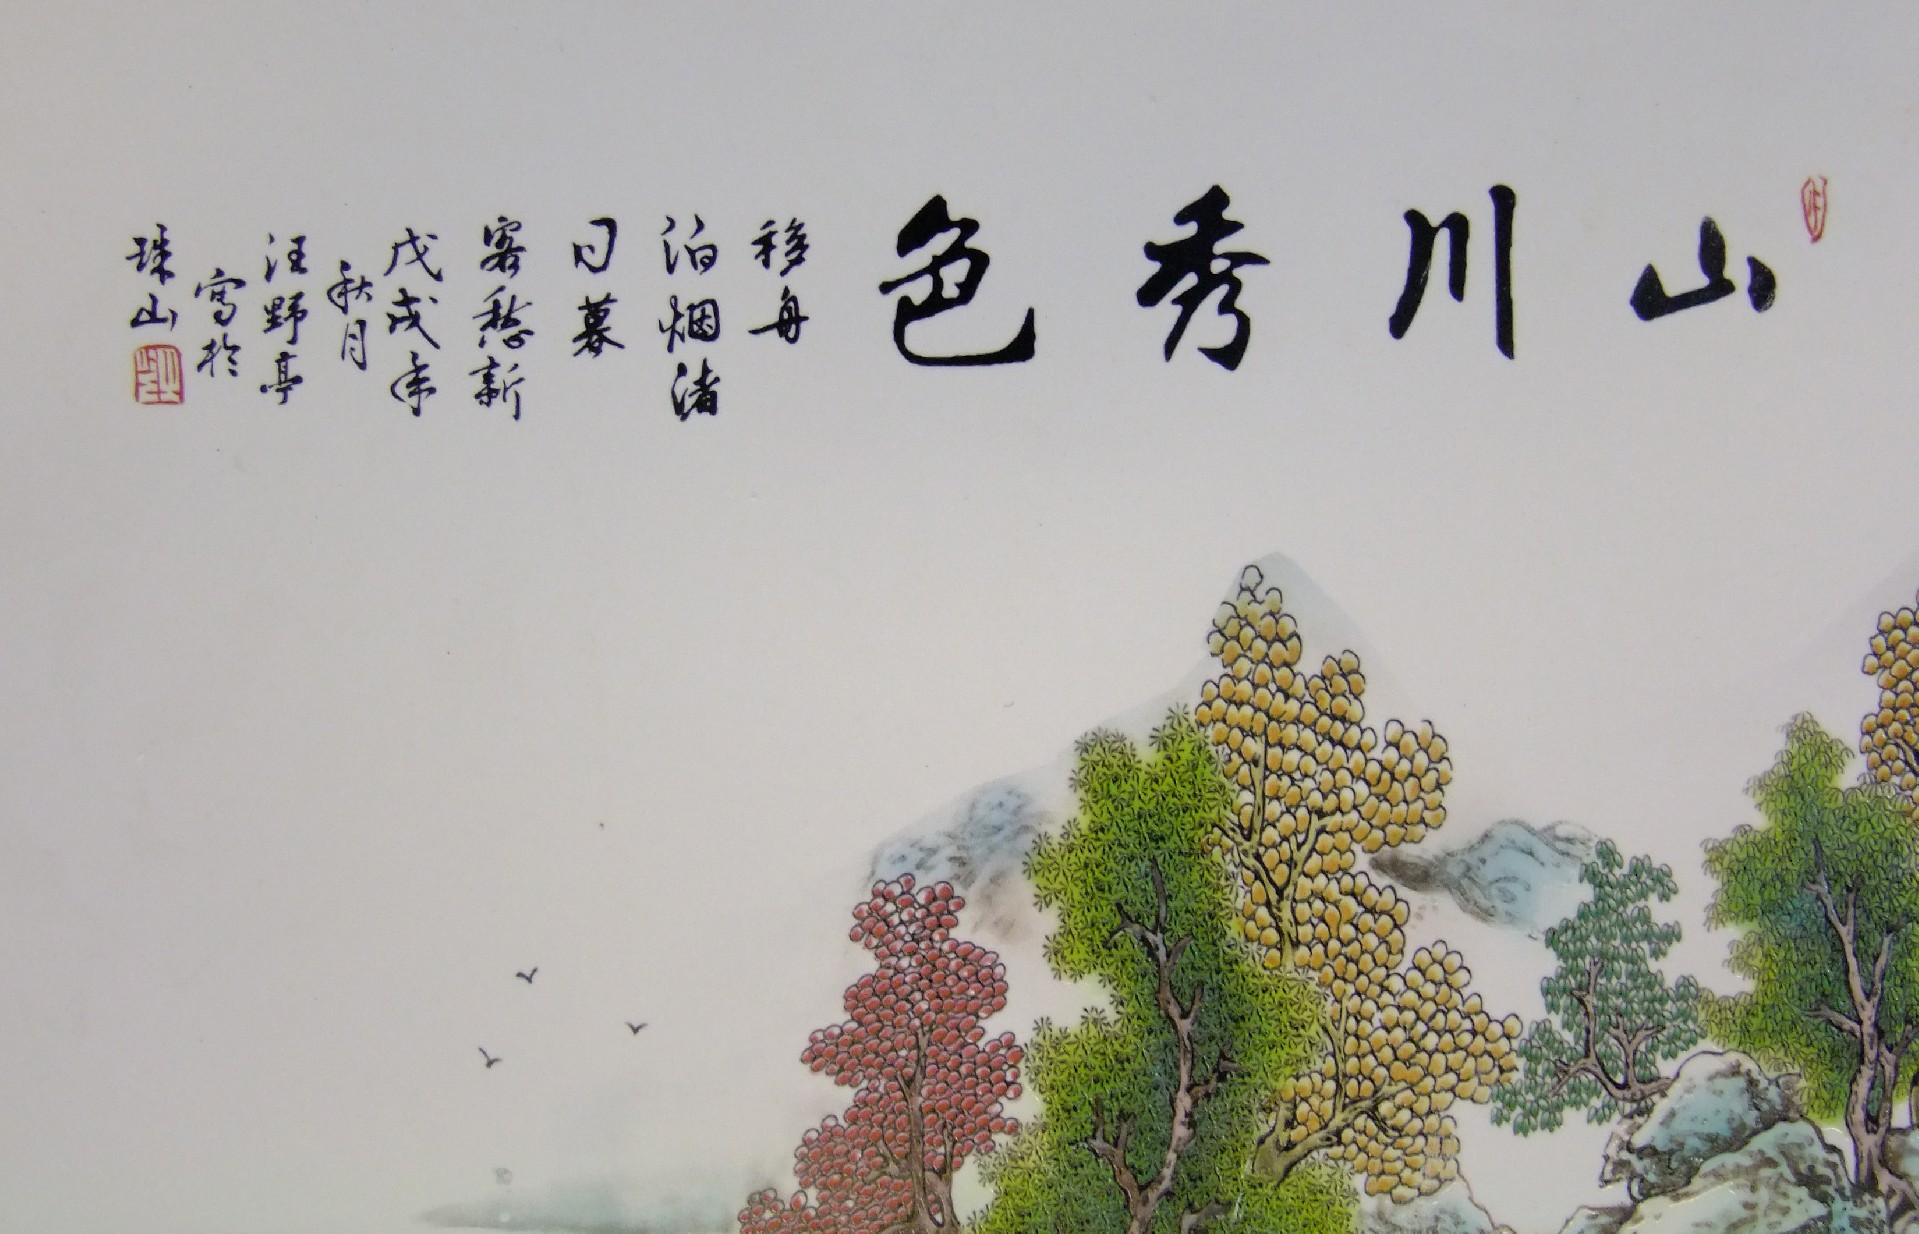 山川秀色
移舟
泊烟渚
日暮
客愁新
戊戌年
秋月
汪野亭
寫於
珠山